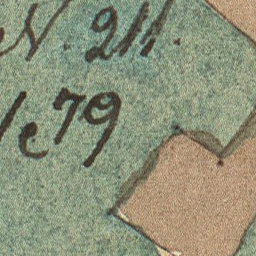 N. 211.
1e79